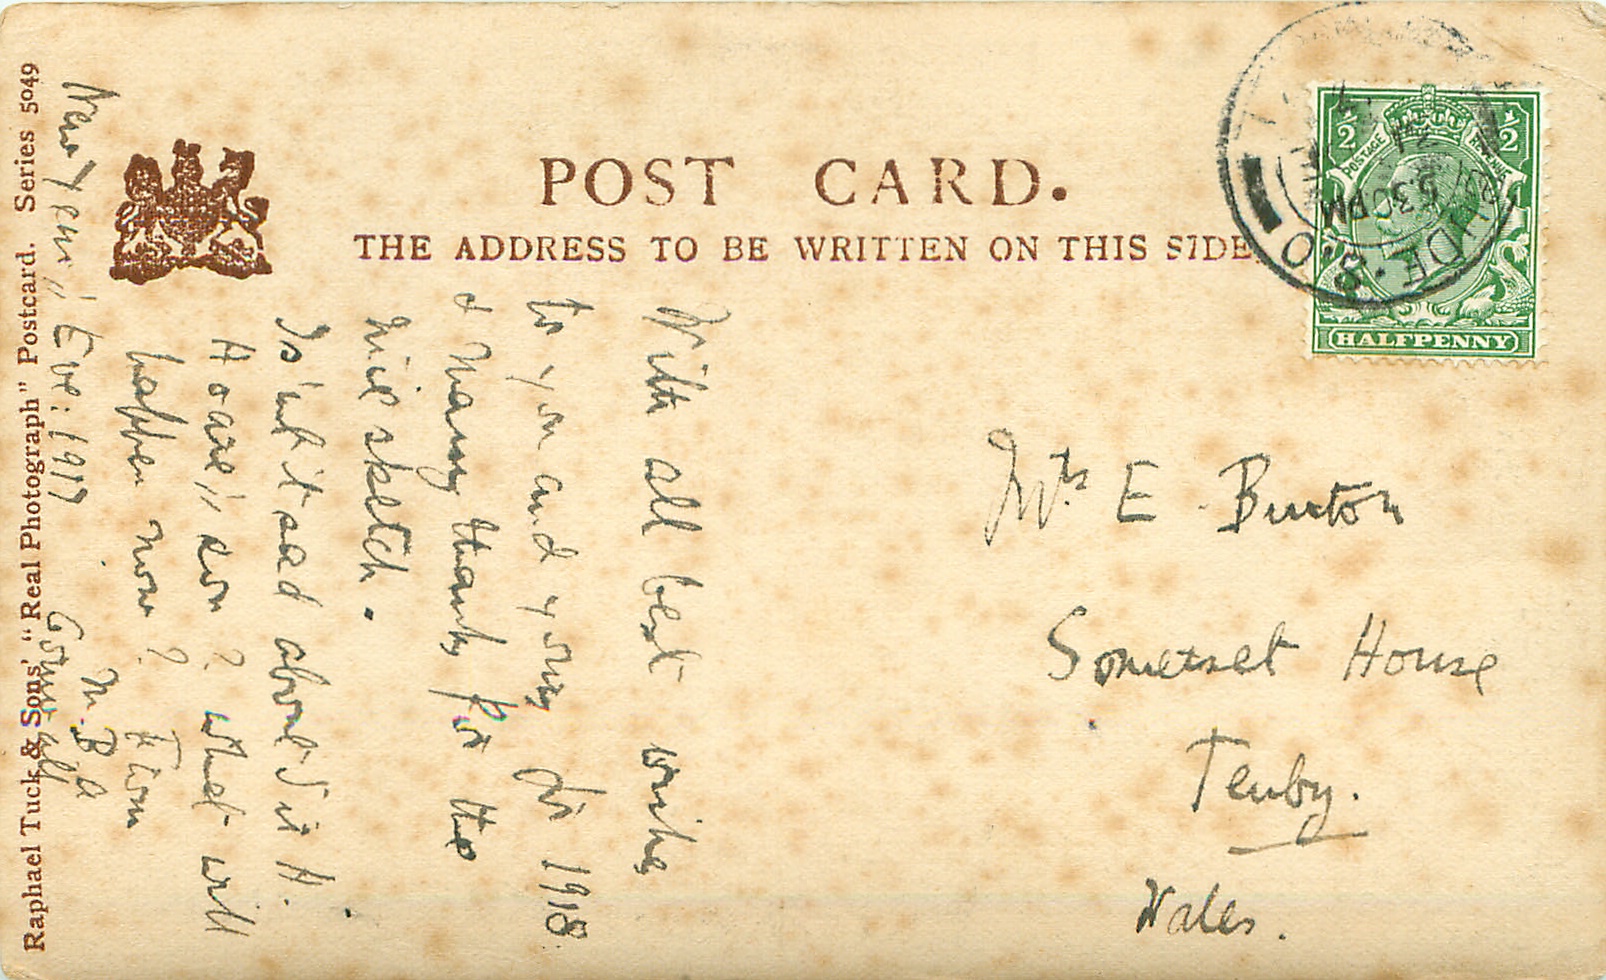 POST CARD.
THE ADDRESS TO BE WRITTEN ON THIS SIDE.
Raphael Tuck & Sons' "Real Photograph" Postcard. Series 5049
1/2 1/2
POSTAGE REVENUE
HALFPENNY
5 30 PM
31
DE·S.O
New Year's Eve: 1917
With all best wishes
to you and yours for 1918
& many thanks for the
nice sketch.
Is'nt it sad about Sir H.
Hoare's son? what will
happen now?
M. B a
Cornwall
Mrs E. Burton
Somerset House
Tenby.
Wales.